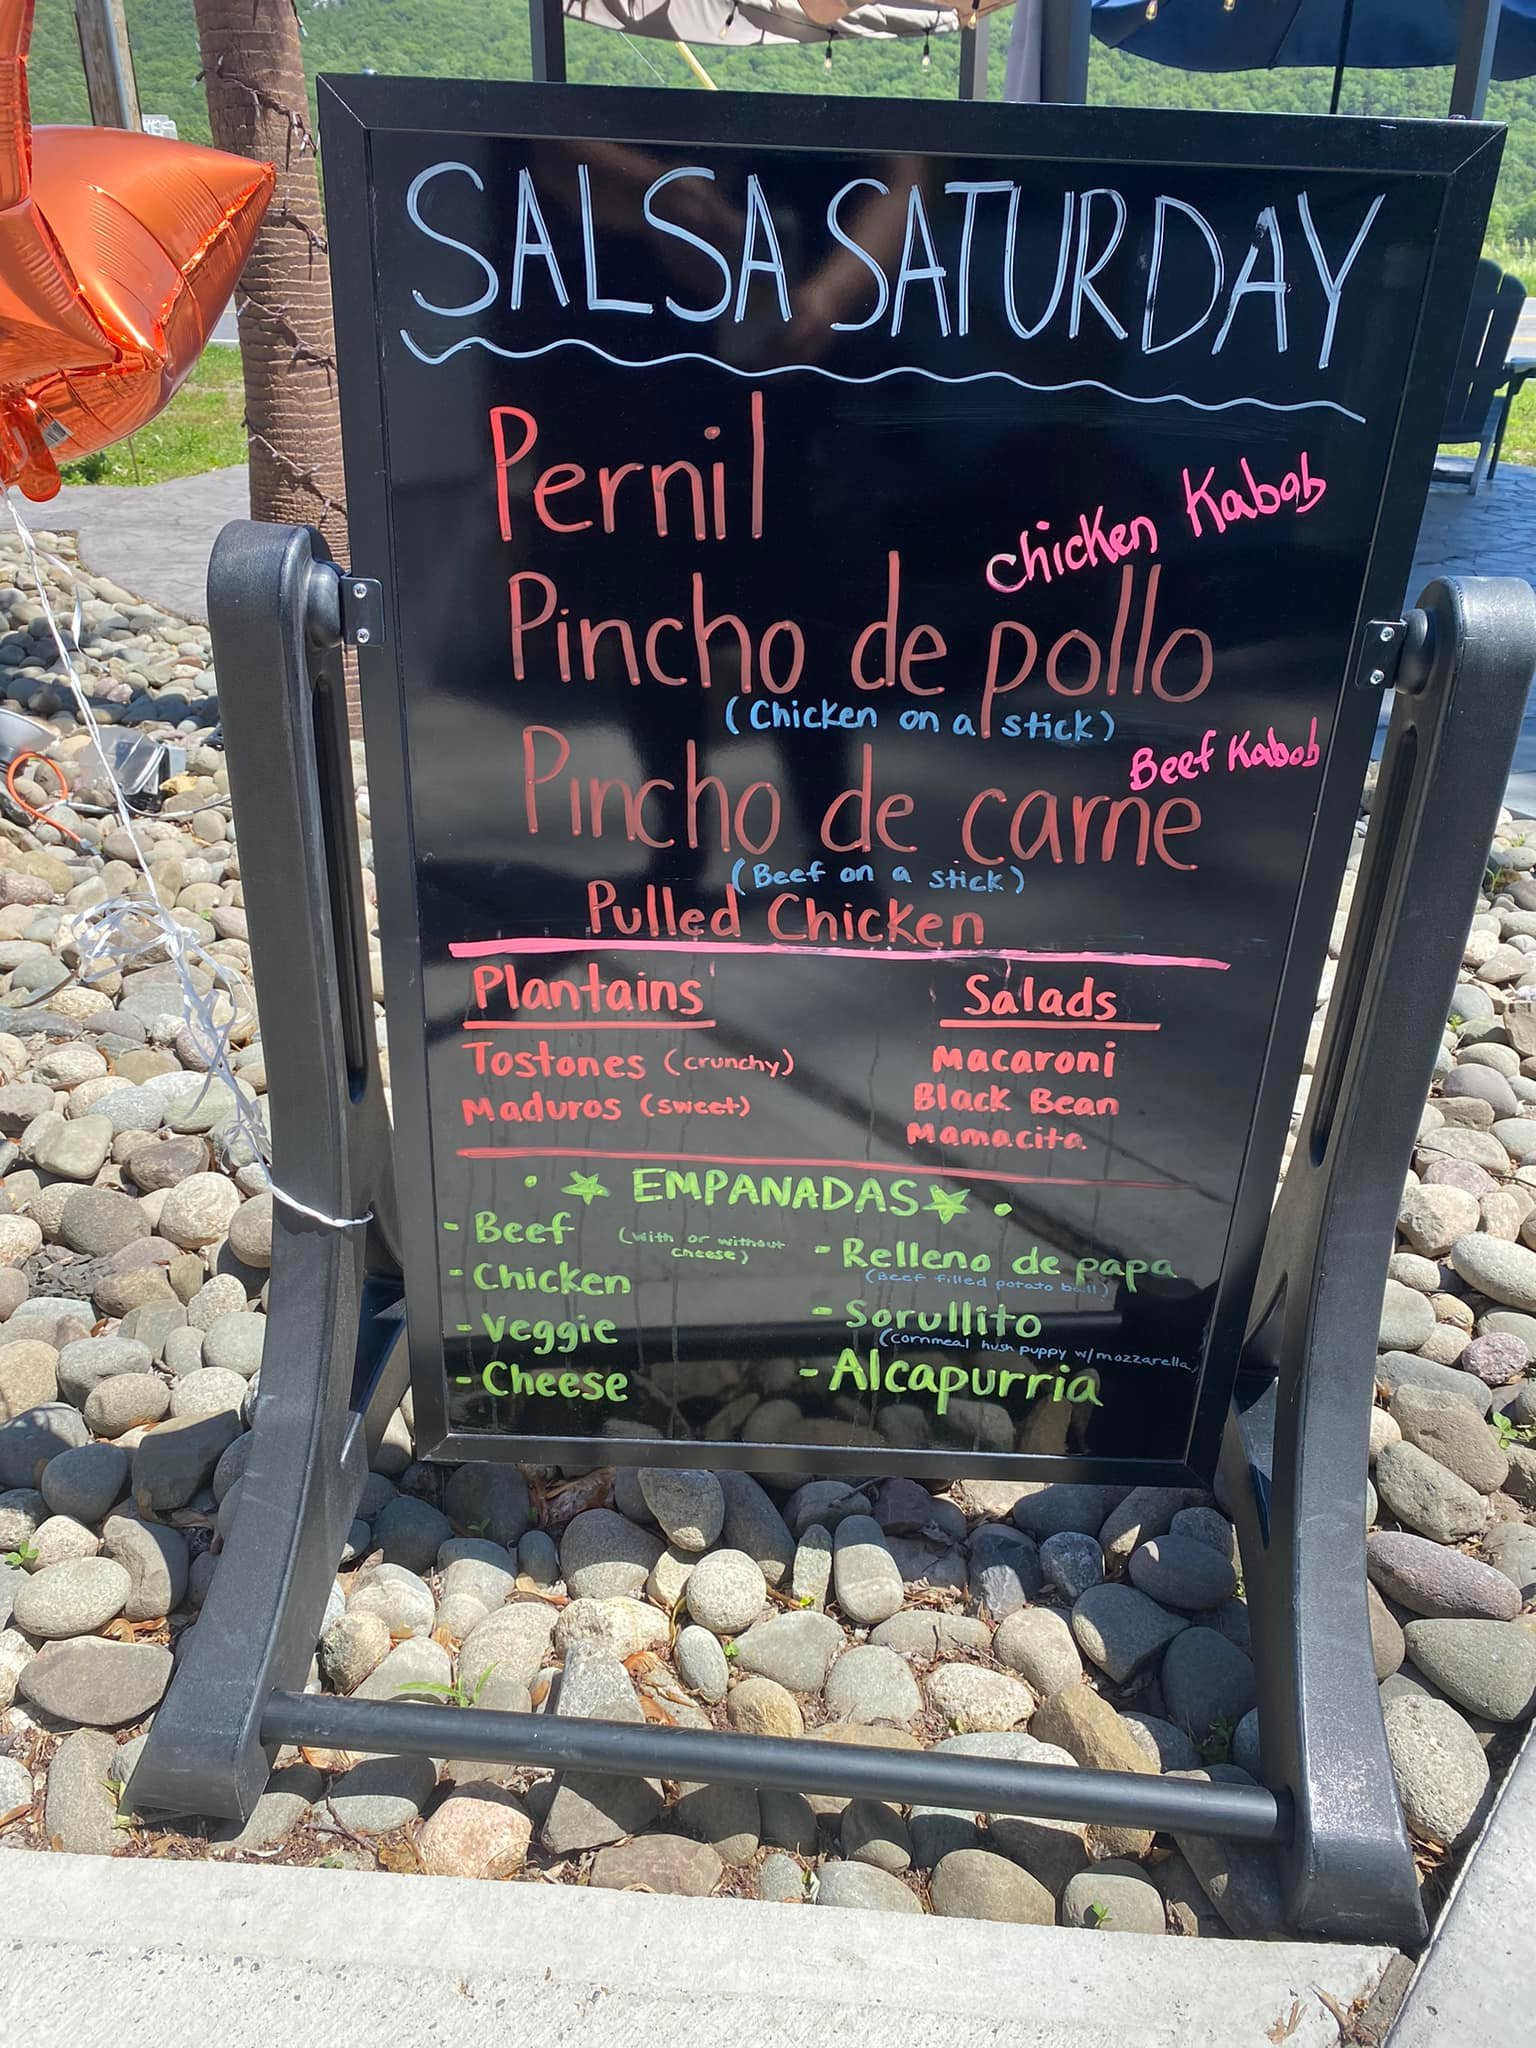 SALSA SATURDAY
Pernil
Chicken Kabob
Pincho de pollo
(Chicken on a stick)
Beef Kabob
Pincho de carne
(Beef on a stick)
Pulled Chicken
Plantains
Tostones (crunchy)
Maduros (sweet)
Salads
Macaroni
Black Bean
Mamacita
EMPANADAS
- Beef (with or without
cheese)
- Chicken
- Veggie
- Cheese
- Relleno de papa
(Beef filled potato ball)
- Sorullito
(cornmeal hush puppy w/mozzarella)
- Alcapurria